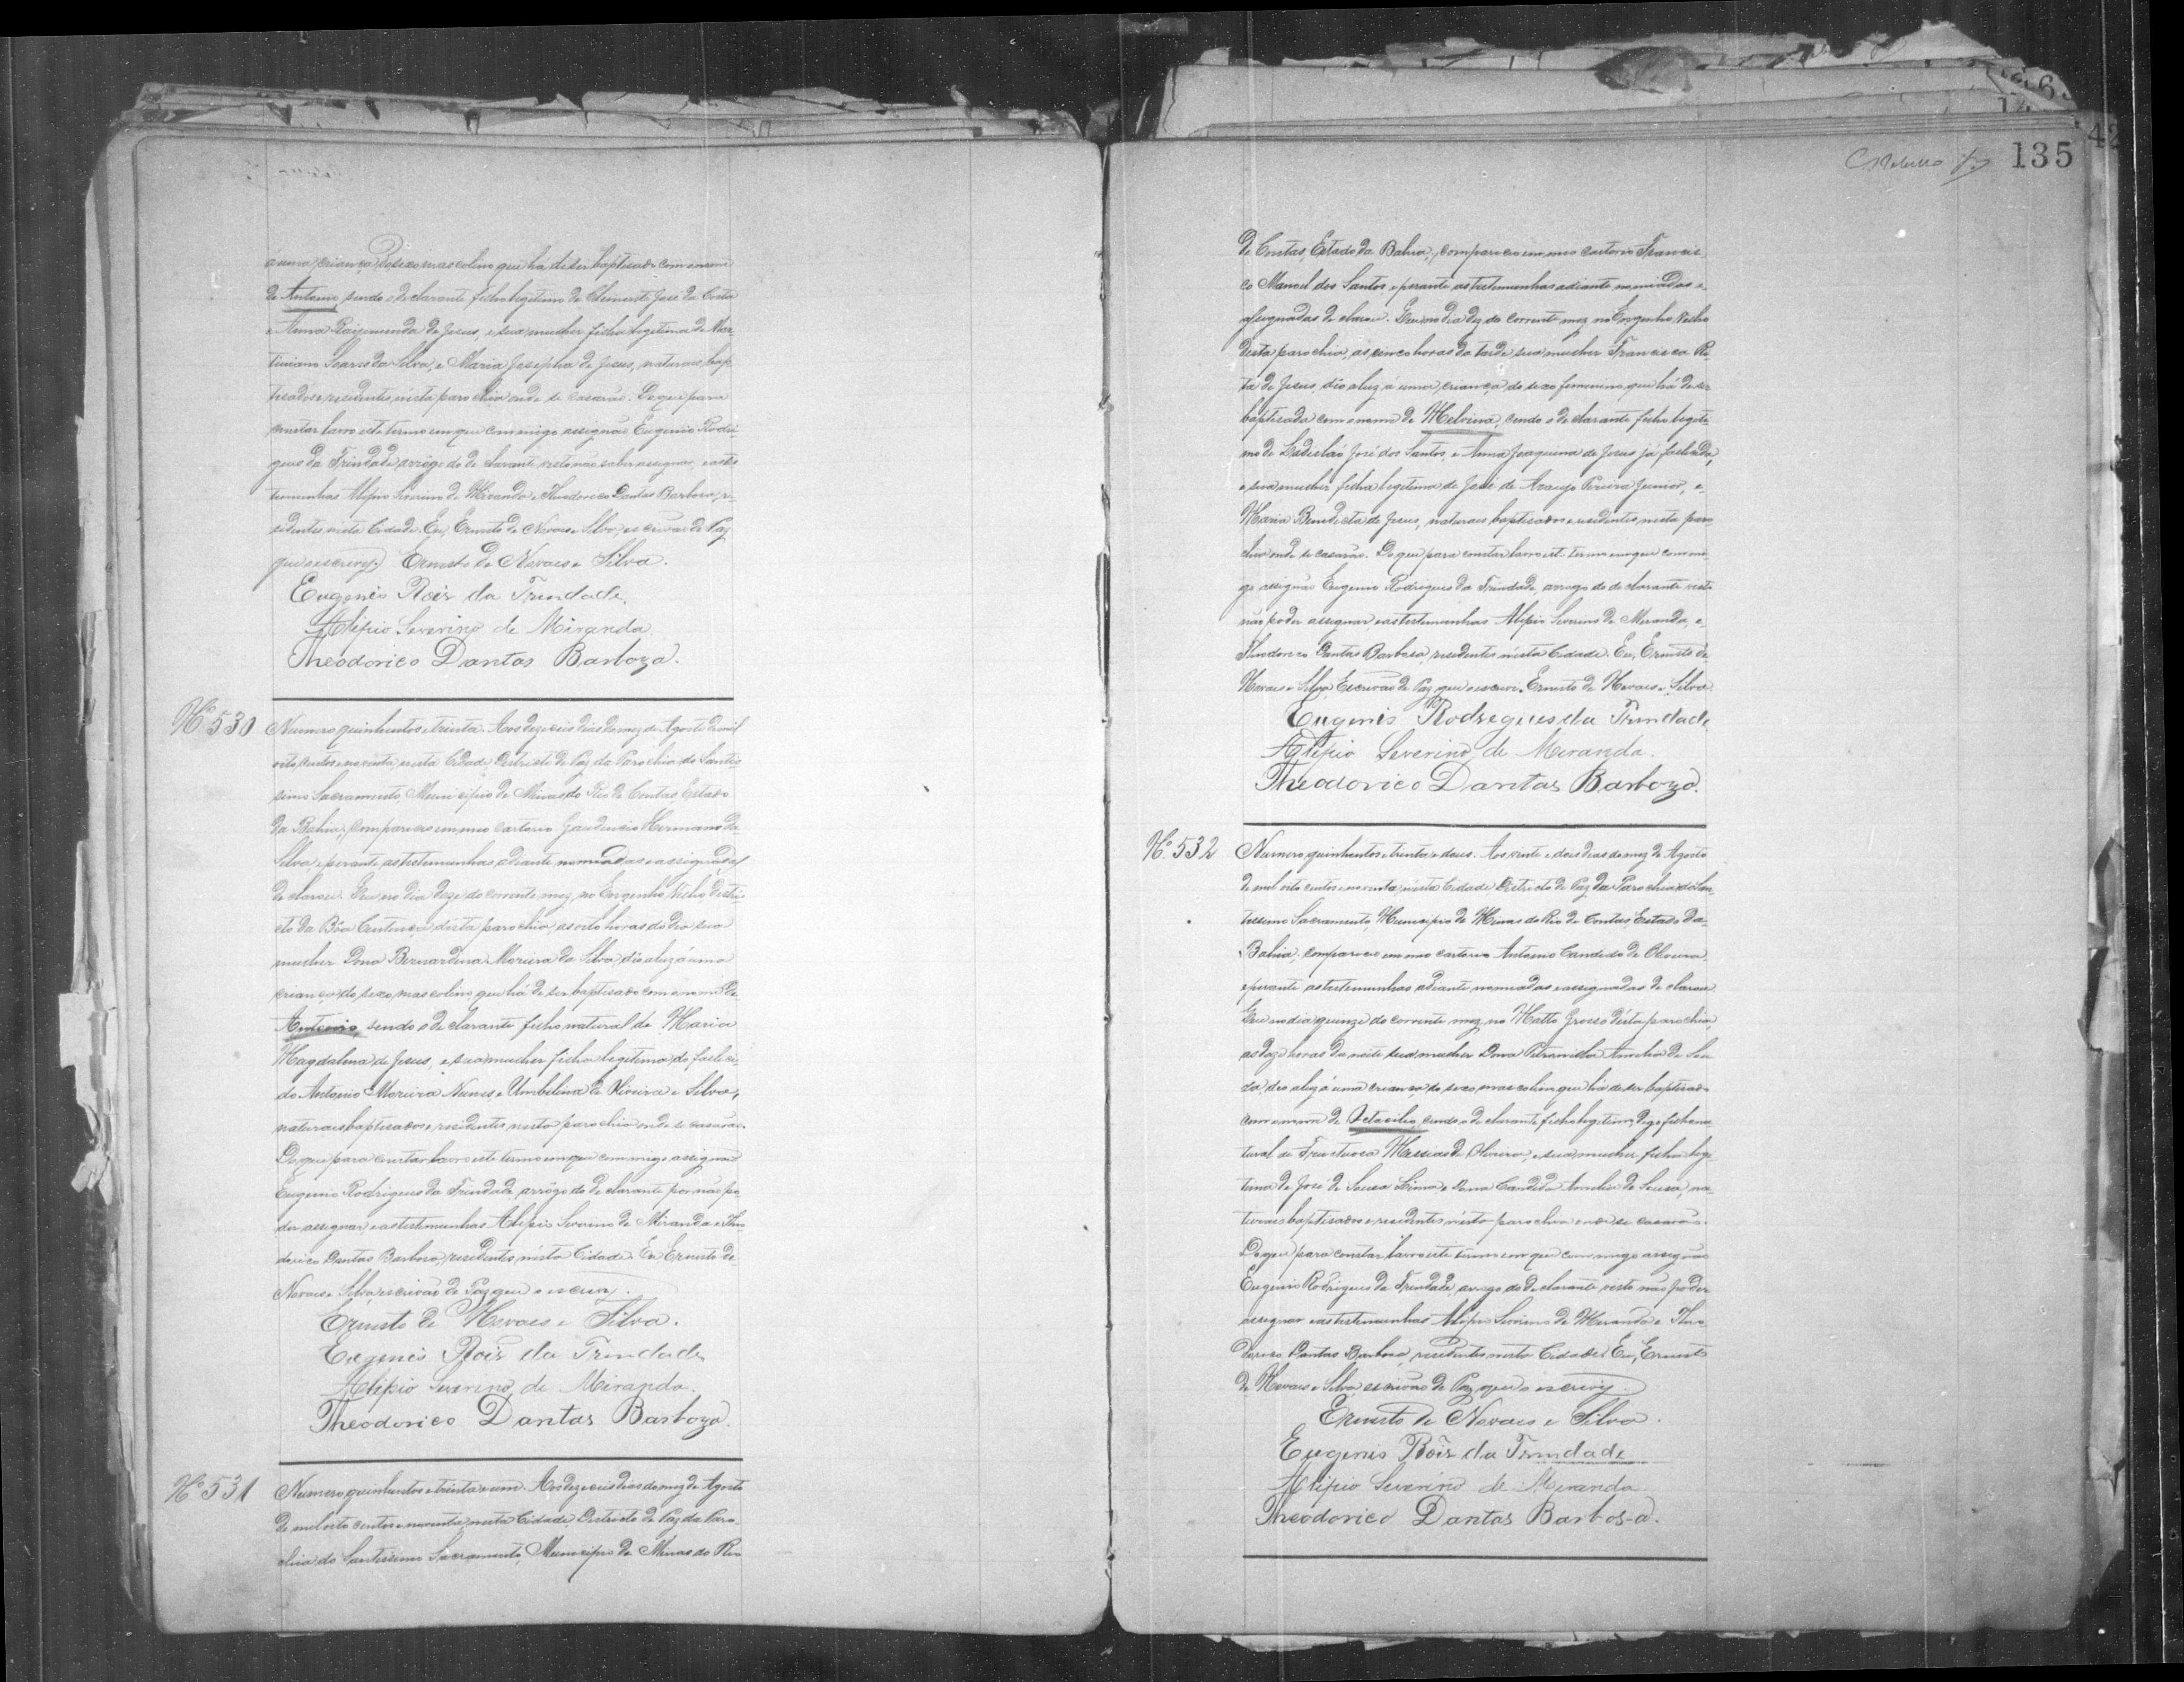 á uma criança do sexo mascolino que ha de ser baptisado com o nome
de Antonio, sendo o declarante filho legitimo de Clemente José da Costa
e Anna Raigemunda de Jesus, e sua mulher filha legitima de Mar
tiniano Soares da Silva, e Maria Josepha de Jesus, naturaes bap
tisados e residentes nésta parochia onde se casarão. De que para
constar lavro este termo em que commigo assignão Eugenio Rodri
gues da Trindade, arrôgo do declarante visto não saber assignar, e as tes
temunhas Alipio Severino de Miranda e Theodorico Dantas Barbosa, re
sidentes nésta Cidade. Eu, Ernesto de Novaes e Silva, escrivão de Paz
que o escrevy. Ernesto de Novaes e Silva.
Eugenio Roĩz da Trindade.
Alipio Severino de Miranda.
Theodorico Dantas Barboza.
Nº 530
Numero quinhentos e trinta. Aos dezeseis dias do mez de Agosto de mil
oito centos e noventa, nésta Cidade Districto de Paz da Parochia do Santis
simo Sacramento, Municipio de Minas do Rio de Contas, Estado
da Bahia, compareceo em meo cartorio Gaudencio Hermano da
Silva e perante as testemunhas adiante nomiadas e assignadas
declarou. Que no dia doze do corrente mez, no Engenho Velho distri
cto da Bôa Sentença, desta parochia, as oito horas do dia sua
mulher Dona Bernardina Moreira da Silva, dêo a luz á uma
criança do sexo mascolino que há de ser baptisado com o nome de
Antonio, sendo o declarante filho natural de Maria
Magdalena de Jesus, e sua mulher filha legitima do falleci
do Antonio Moreira Nunes e Umbelina de Oliveira e Silva,
naturaes baptisados e residentes nesta parochia onde se casarão.
De que para constar lavro este termo em que commigo assignão
Eugenio Rodrigues da Trindade, arrôgo do declarante por não po
der assignar, e as testemunhas Alipio Severino de Miranda e Theo
dorico Dantas Barbosa, residentes nésta Cidade. Eu Ernesto de
Novaes e Silva, escrivão de Paz que o escrevy.
Ernesto de Novaes e Silva.
Eugenio Roĩz da Trindade
Alipio Severino de Miranda.
Theodorico Dantas Barboza.
Nº 531
Numero quinhentos e trinta e um. Aos dezeseis dias do mez de Agosto
de mil oito centos e noventa, nesta Cidade, Districto de Paz da Paro
chia do Santissimo Sacramento, Municipio de Minas do Rio
135
de Contas, Estado da Bahia, compareceo em meo cartorio Francis
co Manoel dos Santos e perante as testemunhas adiante nomiadas e
assignadas declarou. Que no dia dez do corrente mez no Engenho Velho
desta parochia, as cinco horas da tarde, sua mulher Francisca Ri
ta de Jesus, dêo a luz á uma criança do sexo femenino, que há de ser
baptisada com o nome de Melvina, sendo o declarante filho legiti
mo de Ladislao José dos Santos, e Anna Joaquina de Jesus já fallecida,
e sua mulher filha legitima de José de Araujo Pereira Junior, e
Maria Benedicta de Jesus, naturaes baptisados e residentes nesta paro
chia onde se casarão. De que para constar lavro este termo em que commi
go assignão Eugenio Rodrigues da Trindade, arrogo do declarante visto
não poder assignar, e as testemunhas Alipio Severino de Miranda, e
Theodorico Dantas Barbosa, residentes nésta Cidade. Eu, Ernesto de
Novaes e Silva, Escrivão de Paz que o escrevi. Ernesto de Novaes e Silva
Eugenio Rodregues da Trindade
Alipio Severino de Miranda.
Theodorico Dantas Barboza.
Nº 532
Numero quinhentos e trinta e dous. Aos vinte e dois dias do mez de Agosto
de mil oito centos e noventa, nésta Cidade Districto de Paz da Parochia do San
tissimo Sacramento, Municipio de Minas do Rio de Contas, Estado da
Bahia, compareceo em meo cartorio Antonio Candido de Oliveira,
e perante as testemunhas adiante nomiadas e assignadas declarou.
Que no dia quinze do corrente mez, no Matto Grosso désta parochia,
as doze horas da noite sua mulher Dona Petronilha Amelia de Sou
za, deo a luz á uma criança do sexo mascolino que há de ser baptisado
com o nome de Octacilio, sendo o declarante filho legitimo, digo filho na
tural de Fructuosa Messias de Oliveira, e sua mulher filha legi
tima de José de Sousa Lima e Dona Candida Amelia de Sousa, na
turaes baptisados e residentes nésta parochia onde se casarão.
De que para constar lavro este termo em que commigo assignão
Eugenio Rodrigues da Trindade, arrogo do declarante visto não poder
assignar e as testemunhas Alipio Severino de Miranda e Theo
dorico Dantas Barbosa, residentes nesta Cidade. Eu, Ernesto
de Novaes e Silva escrivão de Paz que o escrevy.
Ernesto de Novaes e Silva.
Eugenio Roĩz da Trindade
Alipio Severino de Miranda
Theodorico Dantas Barbosa.